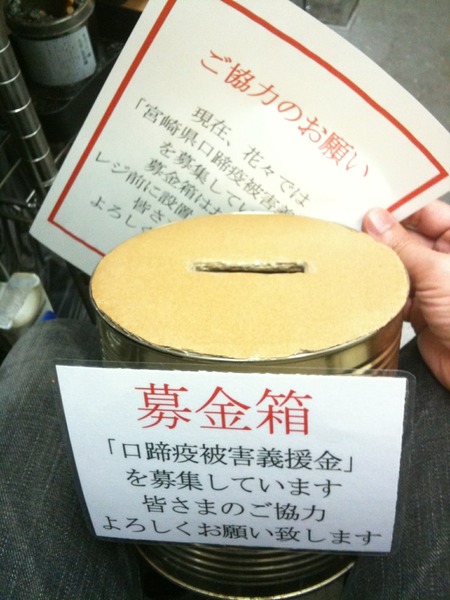 ご協力のお願い
現在、花々では
「宮崎県口蹄疫被害義
を募集してい
募金箱は
レジ前に設置
皆さ
よろし
募金箱
「口蹄疫被害義援金」
を募集しています
皆さまのご協力
よろしくお願い致します